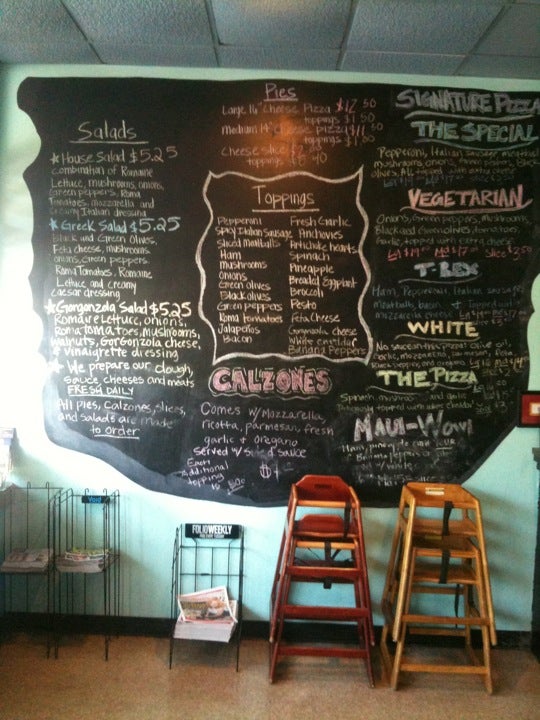 Salads
★ House Salad $5.25
combination of Romaine
Lettuce, mushrooms, onions,
Green peppers, Roma
Tomatoes, mozzarella and
Creamy Italian dressing
★ Greek Salad $5.25
Black and Green Olives,
Feta cheese, mushrooms
onions, Green peppers,
Roma Tomatoes, Romaine
Lettuce and creamy
caesar dressing
★ Gorgonzola Salad $5.25
Romaine Lettuce, onions,
Roma tomatoes, mushrooms,
walnuts, Gorgonzola cheese,
& vinaigrette dressing
★ We prepare our dough,
sauce cheeses and meats
FRESH DAILY
All pies, Calzones, slices,
and salads are made
to Order
Pies
Large 16" Cheese Pizza $12.50
toppings $1.50
medium 14" cheese pizza $11.50
toppings $1.00
cheese slice
toppings
Toppings
Pepperoni
Spicy Italian Sausage
Sliced meatballs
Ham
mushrooms
onions
Green olives
Black olives
Green peppers
Roma tomatoes
Jalapeños
Bacon
Fresh Garlic
Anchovies
Artichoke hearts
Spinach
Pineapple
Breaded Eggplant
Broccoli
Pesto
Feta Cheese
Gorgonzola cheese
White
Banana Peppers
CALZONES
Comes w/ Mozzarella,
ricotta, parmesan, fresh
garlic & oregano
Served w/ Side of sauce
Each
additional
topping
SIGNATURE PIZZA
THE SPECIAL
Pepperoni, Italian Sausage, meatballs
mushrooms, onions,
olives, all topped with extra cheese
VEGETARIAN
Onions, Green peppers, mushrooms,
Black and Green olives, tomatoes
Garlic, topped with extra cheese
Slice $3.50
T-REX
Ham, Pepperoni, Italian Sausage
meatballs, bacon & topped w/
mozzarella cheese
WHITE
No sauce on this pizza! olive oil,
garlic, mozzarella, parmesan, feta,
Black pepper, and oregano
THE PIZZA
Spinach, mushrooms and garlic
topped with extra cheese
MAUI-WOWI
Ham, pineapple
FOLIO WEEKLY